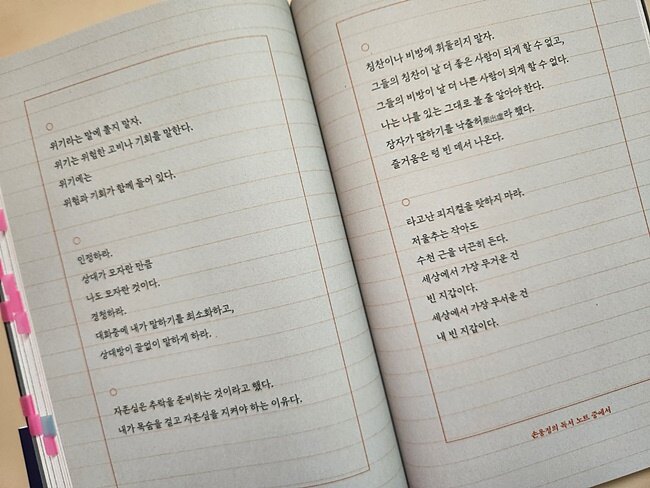 위기라는 말에 쫄지 말자.
위기는 위험한 고비나 기회를 말한다.
위기에는
위험과 기회가 함께 들어 있다.
인정하라.
상대가 모자란 만큼
나도 모자란 것이다.
경청하라.
대화중에 내가 말하기를 최소화하고,
상대방이 끝없이 말하게 하라.
자존심은 추락을 준비하는 것이라고 했다.
내가 목숨을 걸고 자존심을 지켜야 하는 이유다.
칭찬이나 비방에 휘둘리지 말자.
그들의 칭찬이 날 더 좋은 사람이 되게 할 수 없고,
그들의 비방이 날 더 나쁜 사람이 되게 할 수 없다.
나는 나를 있는 그대로 볼 줄 알아야 한다.
장자가 말하기를 낙출허樂出虛라 했다.
즐거움은 텅 빈 데서 나온다.
타고난 피지컬을 탓하지 마라.
저울추는 작아도
수천 근을 너끈히 든다.
세상에서 가장 무거운 건
빈 지갑이다.
세상에서 가장 무서운 건
내 빈 지갑이다.
손웅정의 독서 노트 중에서